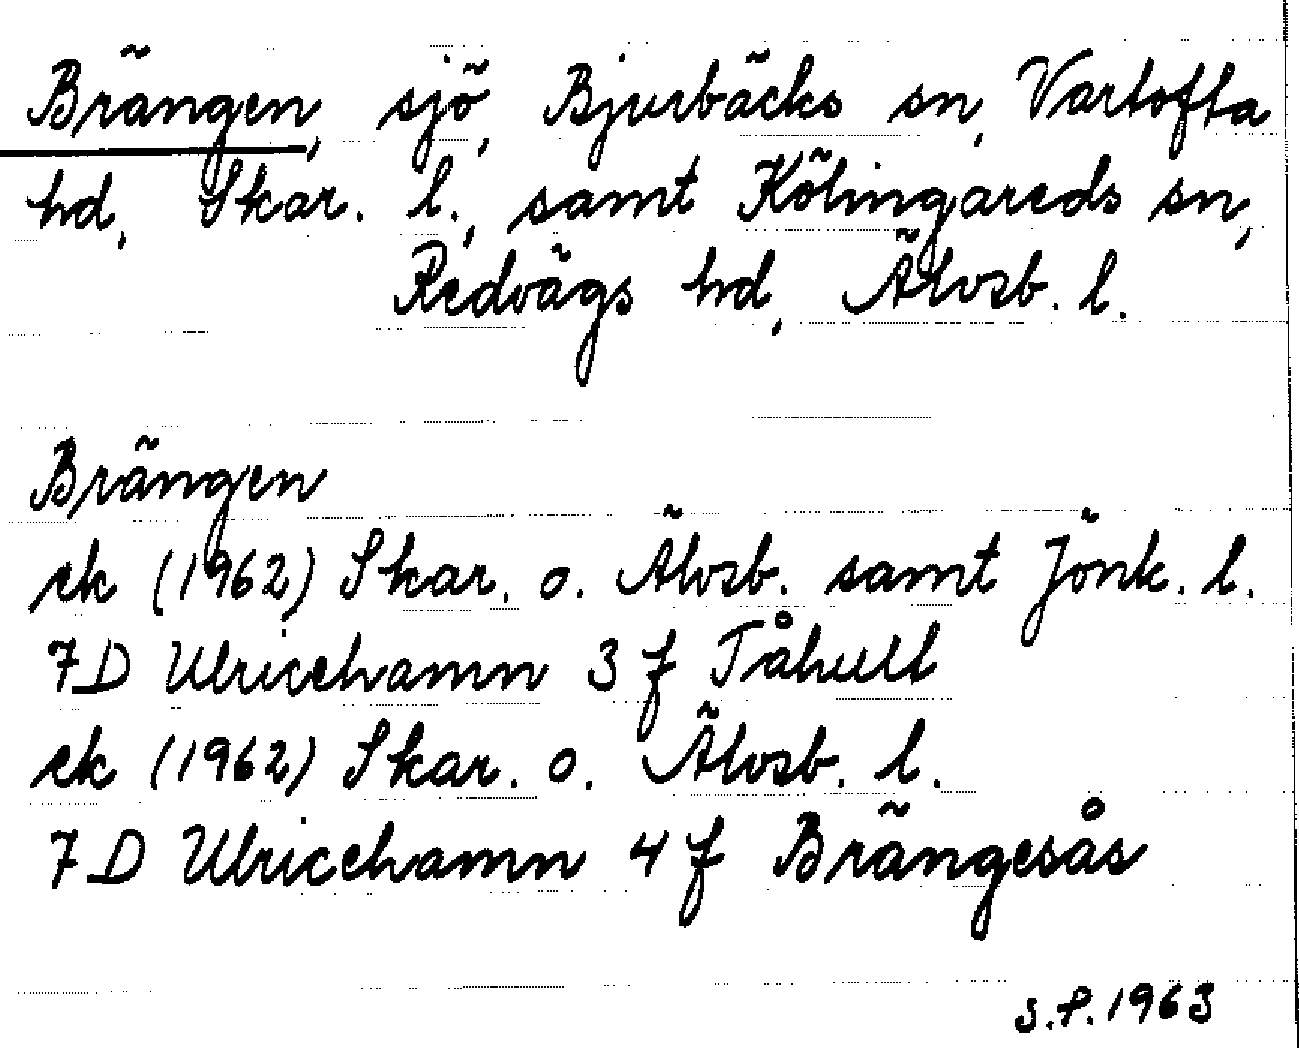 Brängen, sjö, Bjurbäcks sn, Vartofta
hd, Skar. l., samt Kölingareds sn,
Redvägs hd, Älvsb. l.
Brängen
ek (1962) Skar. o. Älvsb. samt Jönk. l.
7D Ulricehamn 3 f Tåhull
ek (1962) Skar. o. Älvsb. l.
7D Ulricehamn 4 f Brängesås
S.P. 1963